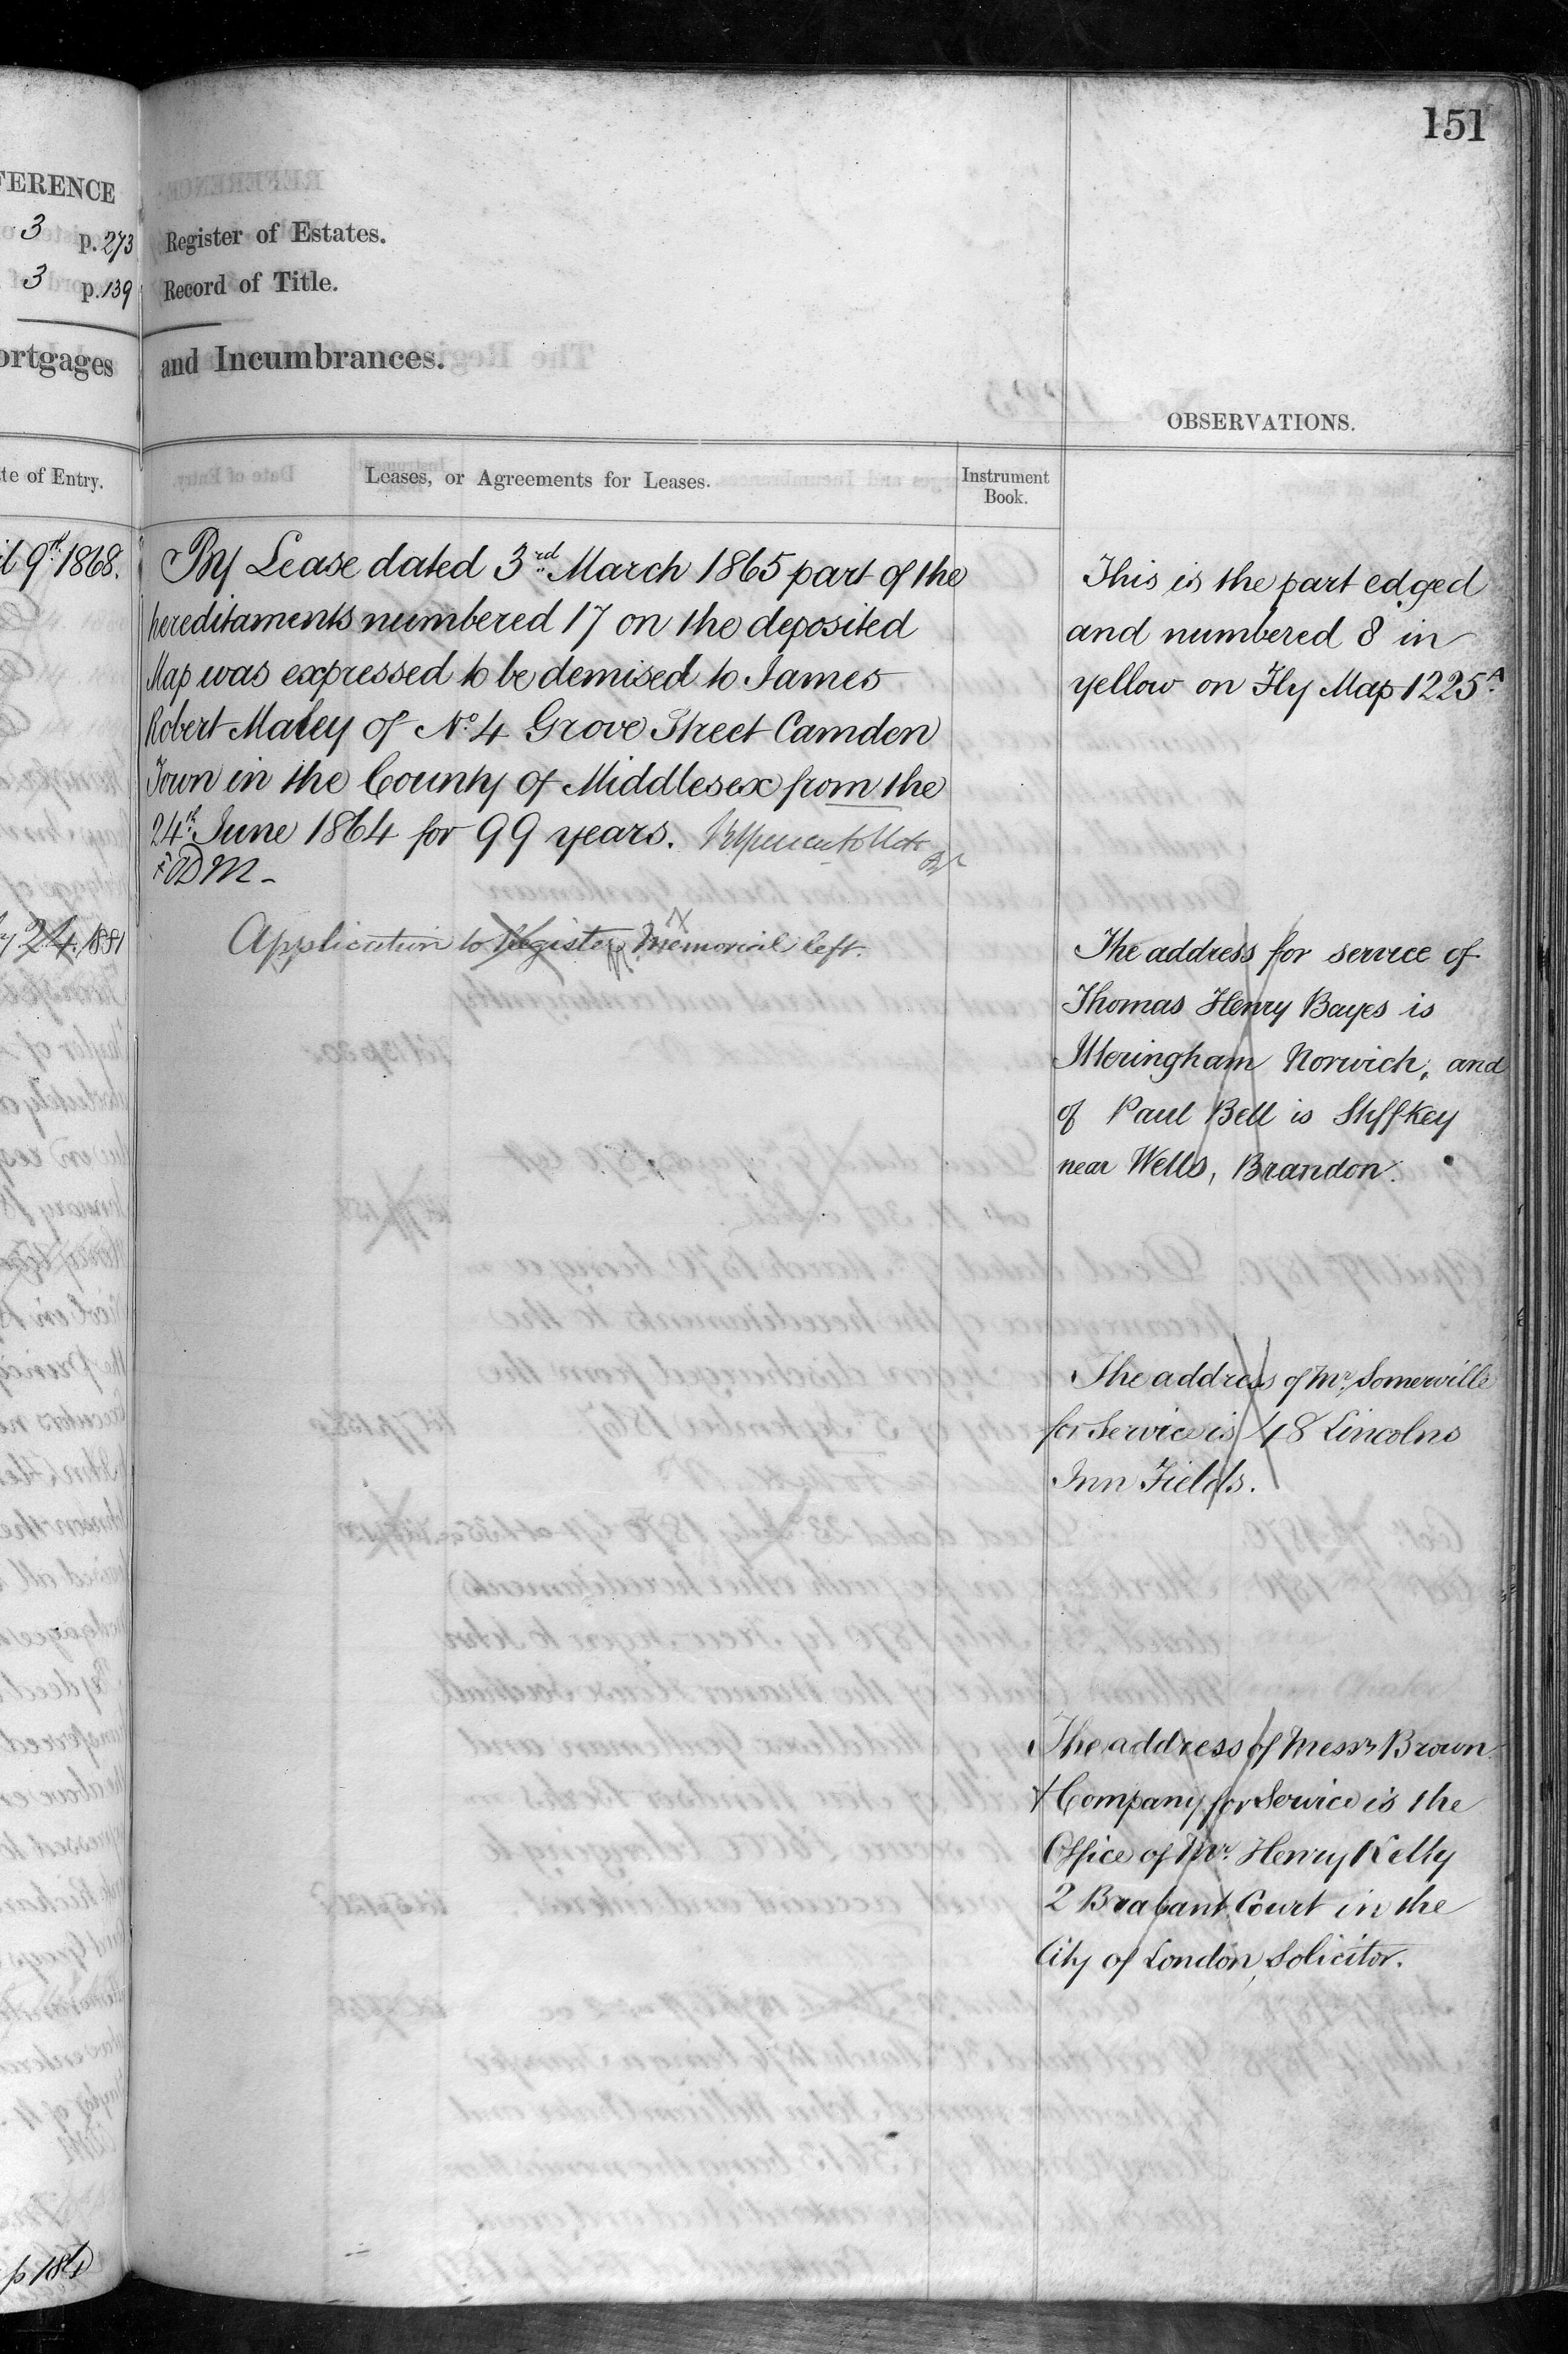 151
FERENCE
3 p. 273 Register of Estates.
3 p. 139 Record of Title.
ortgages and Incumbrances.
OBSERVATIONS.
te of Entry.
Leases, or Agreements for Leases.
Instrument
Book.
il 9th 1868.
By Lease dated 3rd March 1865 part of the
hereditaments numbered 17 on the deposited
Map was expressed to be demised to James
Robert Maley of No. 4 Grove Street Camden
Town in the County of Middlesex from the
24th June 1864 for 99 years.
DM
24. 1881
Application to Register Memorial left.
This is the part edged
and numbered 8 in
yellow on Fly Map 1225A
The address for service of
Thomas Henry Bayes is
Itteringham Norwich, and
of Paul Bell is Stiffkey
near Wells, Brandon.
The address of Mr. Somerville
for Service is 48 Lincolns
Inn Fields.
The address of Messrs Brown
& Company for Service is the
Office of Mr. Henry Kelly
2 Brabant Court in the
City of London, Solicitor.
p 184